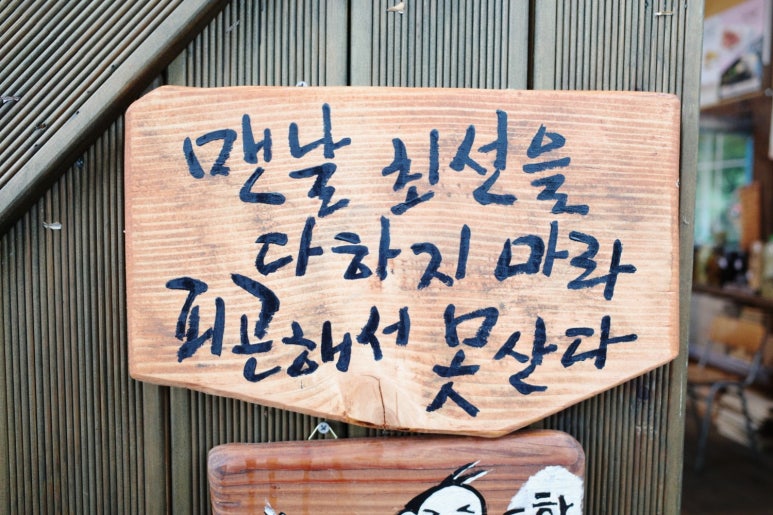 맨날 최선을
다하지 마라
피곤해서 못 살다